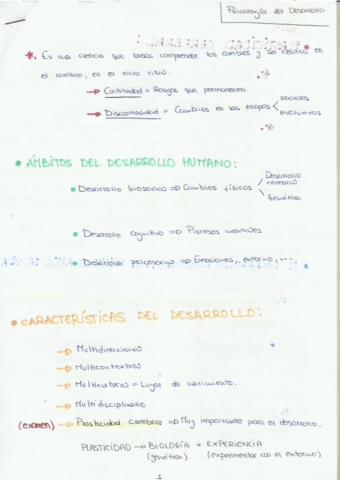 Psicología del Desarrollo
* Es una ciencia que busca comprender los cambios y se centra en
el cambio, en el ciclo vital.
→ Continuidad = Rasgos que permanecen
→ Discontinuidad = Cambios en las etapas < sociales
evolutivas
• ÁMBITOS DEL DESARROLLO HUMANO:
• Desarrollo biosocial ⇒ Cambios físicos < Desarrollo
cerebral
Genética
• Desarrollo cognitivo ⇒ Procesos mentales
• Desarrollo psicosocial ⇒ Emociones, entorno, ...
• CARACTERÍSTICAS DEL DESARROLLO:
→ Multidireccional
→ Multicontextual
→ Multicultural = Lugar de nacimiento.
→ Multidisciplinario
(examen) → Plasticidad cerebral ⇒ Muy importante para el desarrollo.
PLASTICIDAD → BIOLOGÍA + EXPERIENCIA
(genética) (experimentar con el entorno)
1